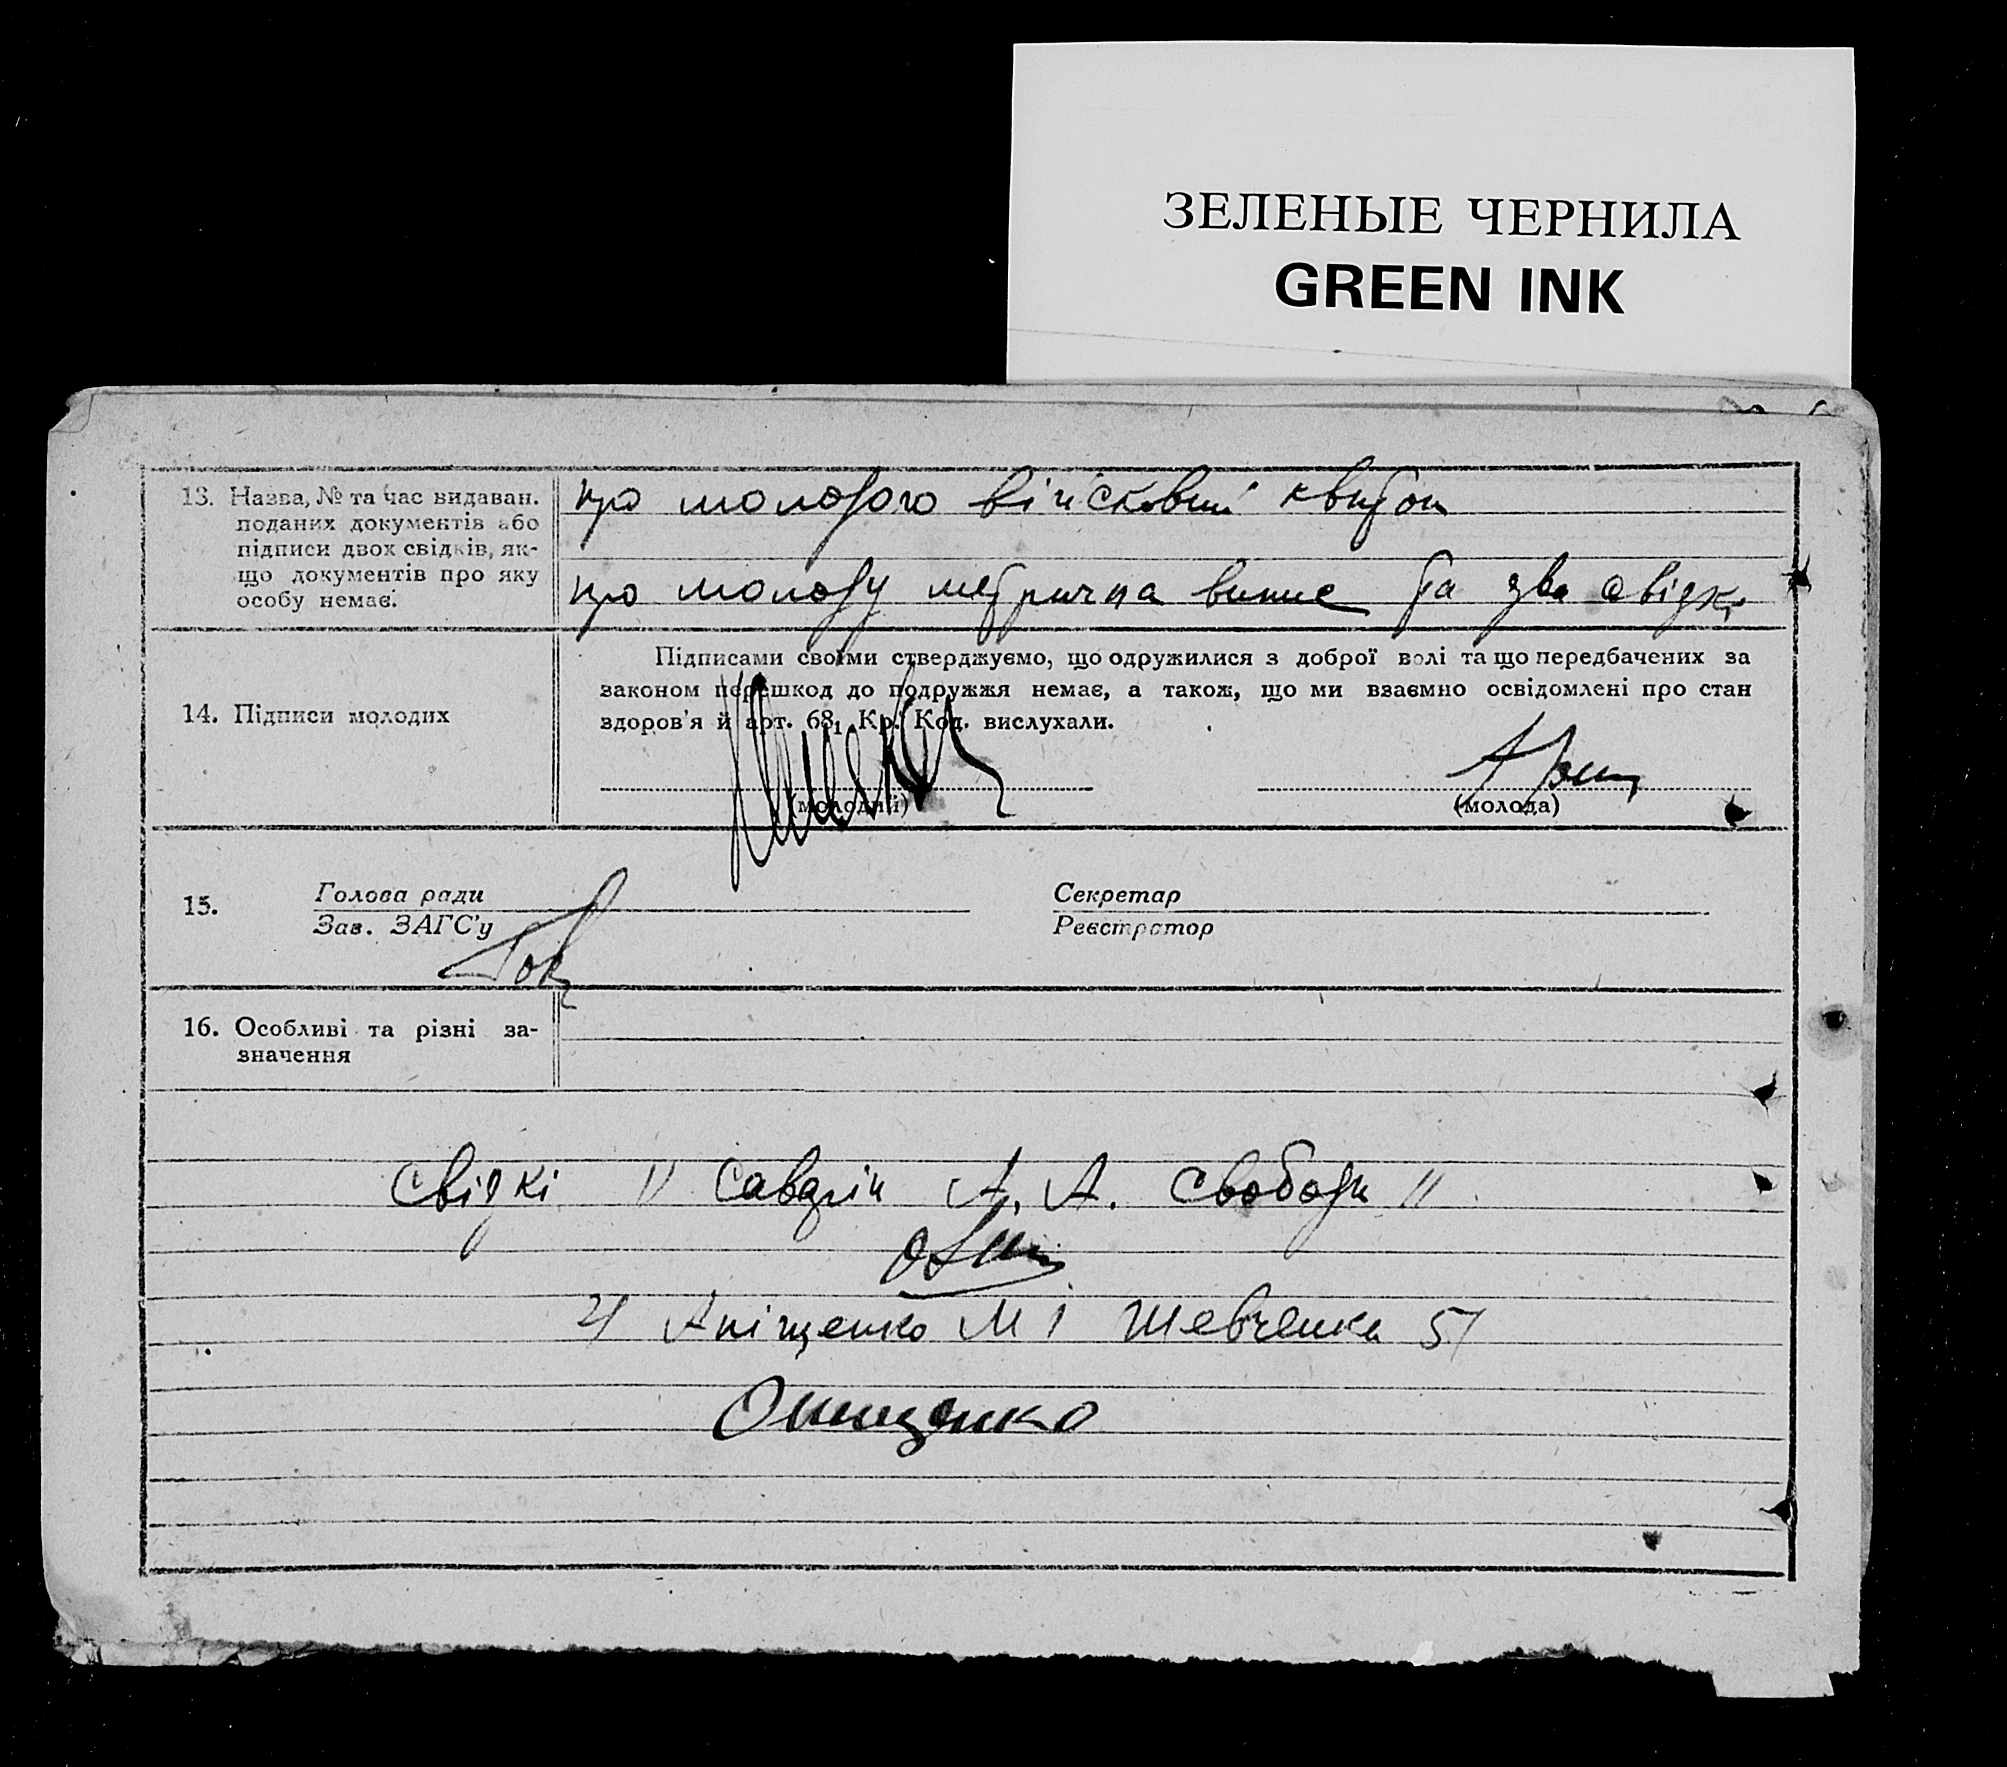 ЗЕЛЕНЫЕ ЧЕРНИЛА
GREEN INK
13. Назва, № та час видаван.
поданих документів або
підписи двох свідків, як-
що документів про яку
особу немає.
про молодого військовий квиток
про молоду метрична та два свідкі
14. Підписи молодих
Підписами своїми стверджуємо, що одружилися з доброї волі та що передбачених за
законом перешкод до подружжя немає, а також, що ми взаємно освідомлені про стан
здоров'я й арт. 68₁ Кр. Код. вислухали.
(молодий) (молода)
15. Голова ради Секретар
Зав. ЗАГС'у Реєстратор
16. Особливі та різні за-
значення
свідкі А. А. Свободи
2) Аніщенко М І Шевченка
Онищенко